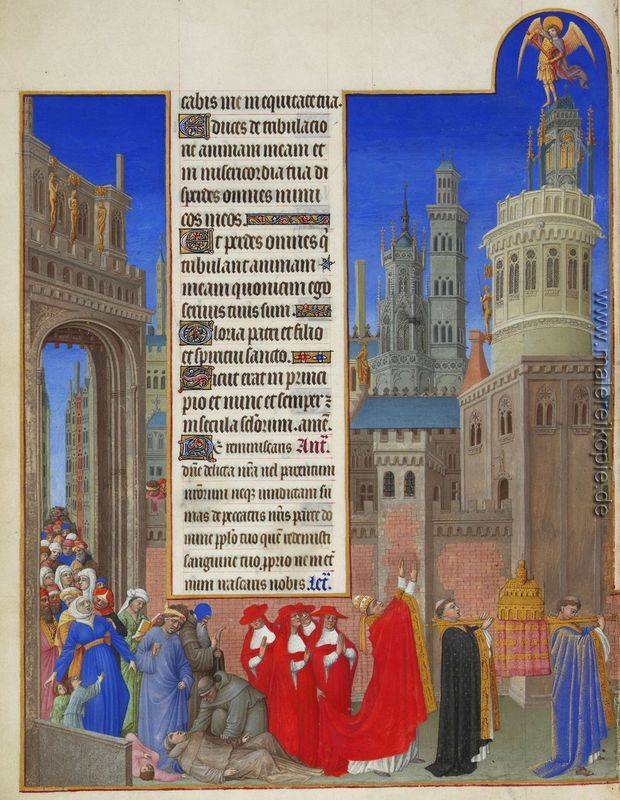 cabis me in equitate tua.
Educes de tribulatio
ne animam meam et
in misericordia tua di
sperdes omnes inimi
cos meos.
Et perdes omnes q̄
tribulant animam
meam quoniam ego
seruus tuus sum.
Gloria patri et filio
et spiritui sancto.
Sicut erat in princi
pio et nunc et semper ⁊
in secula sclorum. amē.
Ne reminiscaris Ant̄.
dn̄e delicta nr̄a uel parentum
nr̄orum neq; uindictam su
mas de peccatis nr̄is parce do
mine pp̄lo tuo quē redemisti
sanguine tuo p̄prio ne in et̄
num irascaris nobis. Let̄.
www.malereikopie.de